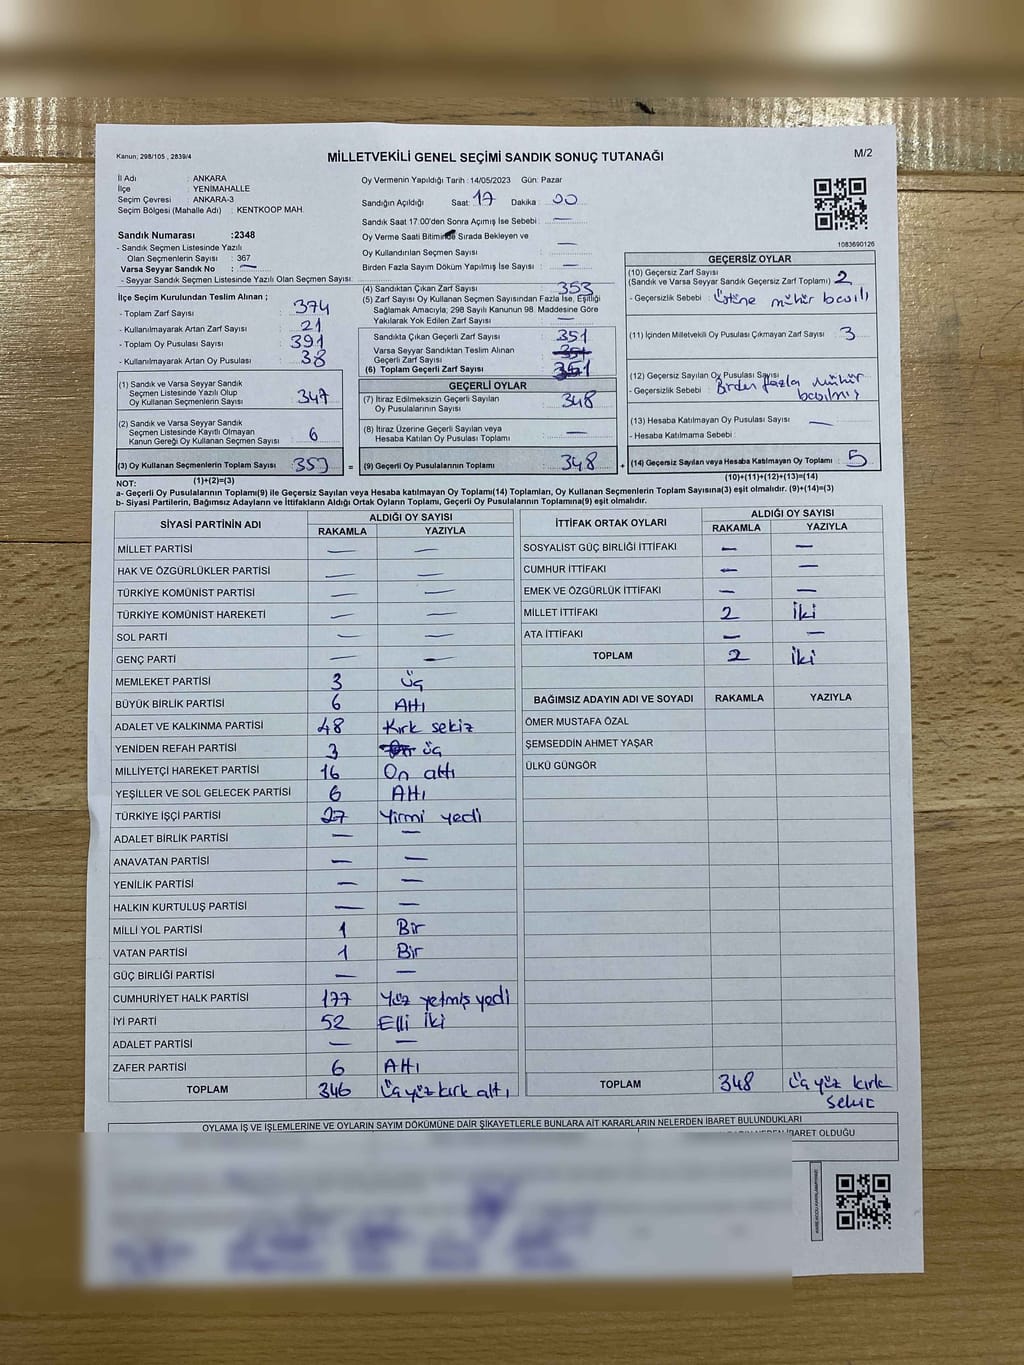 Kanun; 298/105 , 2839/4
MİLLETVEKİLİ GENEL SEÇİMİ SANDIK SONUÇ TUTANAĞI
M/2
İl Adı : ANKARA
İlçe : YENİMAHALLE
Seçim Çevresi : ANKARA-3
Seçim Bölgesi (Mahalle Adı) : KENTKOOP MAH.
Sandık Numarası :2348
- Sandık Seçmen Listesinde Yazılı
Olan Seçmenlerin Sayısı : 367
Varsa Seyyar Sandık No : —
- Seyyar Seçmen Listesinde Yazılı Olan Seçmen Sayısı:
Oy Vermenin Yapıldığı Tarih : 14/05/2023 Gün: Pazar
Sandığın Açıldığı Saat: 17 Dakika : 00
Sandık Saat 17:00'den Sonra Açılmış İse Sebebi : —
Oy Verme Saati Bitiminde Sırada Bekleyen ve
Oy Kullandırılan Seçmen Sayısı : —
Birden Fazla Sayım Döküm Yapılmış İse Sayısı : —
1083690126
İlçe Seçim Kurulundan Teslim Alınan ;
- Toplam Zarf Sayısı : 374
- Kullanılmayarak Artan Zarf Sayısı : 21
- Toplam Oy Pusulası Sayısı : 391
- Kullanılmayarak Artan Oy Pusulası : 38
(1) Sandık ve Varsa Seyyar Sandık
Seçmen Listesinde Yazılı Olup
Oy Kullanan Seçmenlerin Sayısı : 347
(2) Sandık ve Varsa Seyyar Sandık
Seçmen Listesinde Kayıtlı Olmayan
Kanun Gereği Oy Kullanan Seçmen Sayısı : 6
(3) Oy Kullanan Seçmenlerin Toplam Sayısı : 353
(1)+(2)=(3)
(4) Sandıktan Çıkan Zarf Sayısı : 353
(5) Zarf Sayısı Oy Kullanan Seçmen Sayısından Fazla İse, Eşitliği
Sağlamak Amacıyla; 298 Sayılı Kanunun 98. Maddesine Göre
Yakılarak Yok Edilen Zarf Sayısı : —
Sandıkta Çıkan Geçerli Zarf Sayısı : 351
Varsa Seyyar Sandıktan Teslim Alınan
Geçerli Zarf Sayısı : 351
(6) Toplam Geçerli Zarf Sayısı : 351
GEÇERLİ OYLAR
(7) İtiraz Edilmeksizin Geçerli Sayılan
Oy Pusulalarının Sayısı : 348
(8) İtiraz Üzerine Geçerli Sayılan veya
Hesaba Katılan Oy Pusulası Toplamı : —
= (9) Geçerli Oy Pusulalarının Toplamı : 348 +
GEÇERSİZ OYLAR
(10) Geçersiz Zarf Sayısı
(Sandık ve Varsa Seyyar Sandık Geçersiz Zarf Toplamı) : 2
- Geçersizlik Sebebi : Üstüne mühür basılı
(11) İçinden Milletvekili Oy Pusulası Çıkmayan Zarf Sayısı : 3
(12) Geçersiz Sayılan Oy Pusulası Sayısı
- Geçersizlik Sebebi : Birden fazla mühür
basılmış
(13) Hesaba Katılmayan Oy Pusulası Sayısı : —
- Hesaba Katılmama Sebebi :
(14) Geçersiz Sayılan veya Hesaba Katılmayan Oy Toplamı : 5
(10)+(11)+(12)+(13)=(14)
NOT:
a- Geçerli Oy Pusulalarının Toplamı(9) ile Geçersiz Sayılan veya Hesaba katılmayan Oy Toplamı(14) Toplamları, Oy Kullanan Seçmenlerin Toplam Sayısına(3) eşit olmalıdır. (9)+(14)=(3)
b- Siyasi Partilerin, Bağımsız Adayların ve İttifakların Aldığı Ortak Oyların Toplamı, Geçerli Oy Pusulalarının Toplamına(9) eşit olmalıdır.
SİYASİ PARTİNİN ADI ALDIĞI OY SAYISI
RAKAMLA YAZIYLA
MİLLET PARTİSİ — —
HAK VE ÖZGÜRLÜKLER PARTİSİ — —
TÜRKİYE KOMÜNİST PARTİSİ — —
TÜRKİYE KOMÜNİST HAREKETİ — —
SOL PARTİ — —
GENÇ PARTİ — —
MEMLEKET PARTİSİ 3 Üç
BÜYÜK BİRLİK PARTİSİ 6 Altı
ADALET VE KALKINMA PARTİSİ 48 Kırk sekiz
YENİDEN REFAH PARTİSİ 3 üç
MİLLİYETÇİ HAREKET PARTİSİ 16 On altı
YEŞİLLER VE SOL GELECEK PARTİSİ 6 Altı
TÜRKİYE İŞÇİ PARTİSİ 27 Yirmi yedi
ADALET BİRLİK PARTİSİ — —
ANAVATAN PARTİSİ — —
YENİLİK PARTİSİ — —
HALKIN KURTULUŞ PARTİSİ — —
MİLLİ YOL PARTİSİ 1 Bir
VATAN PARTİSİ 1 Bir
GÜÇ BİRLİĞİ PARTİSİ — —
CUMHURİYET HALK PARTİSİ 177 Yüz yetmiş yedi
İYİ PARTİ 52 Elli iki
ADALET PARTİSİ — —
ZAFER PARTİSİ 6 Altı
TOPLAM 346 Üç yüz kırk altı
İTTİFAK ORTAK OYLARI ALDIĞI OY SAYISI
RAKAMLA YAZIYLA
SOSYALİST GÜÇ BİRLİĞİ İTTİFAKI — —
CUMHUR İTTİFAKI — —
EMEK VE ÖZGÜRLÜK İTTİFAKI — —
MİLLET İTTİFAKI 2 İki
ATA İTTİFAKI — —
TOPLAM 2 İki
BAĞIMSIZ ADAYIN ADI VE SOYADI RAKAMLA YAZIYLA
ÖMER MUSTAFA ÖZAL
ŞEMSEDDİN AHMET YAŞAR
ÜLKÜ GÜNGÖR
TOPLAM 348 Üç yüz kırk
sekiz
OYLAMA İŞ VE İŞLEMLERİNE VE OYLARIN SAYIM DÖKÜMÜNE DAİR ŞİKAYETLERLE BUNLARA AİT KARARLARIN NELERDEN İBARET BULUNDUKLARI
İBARET OLDUĞU